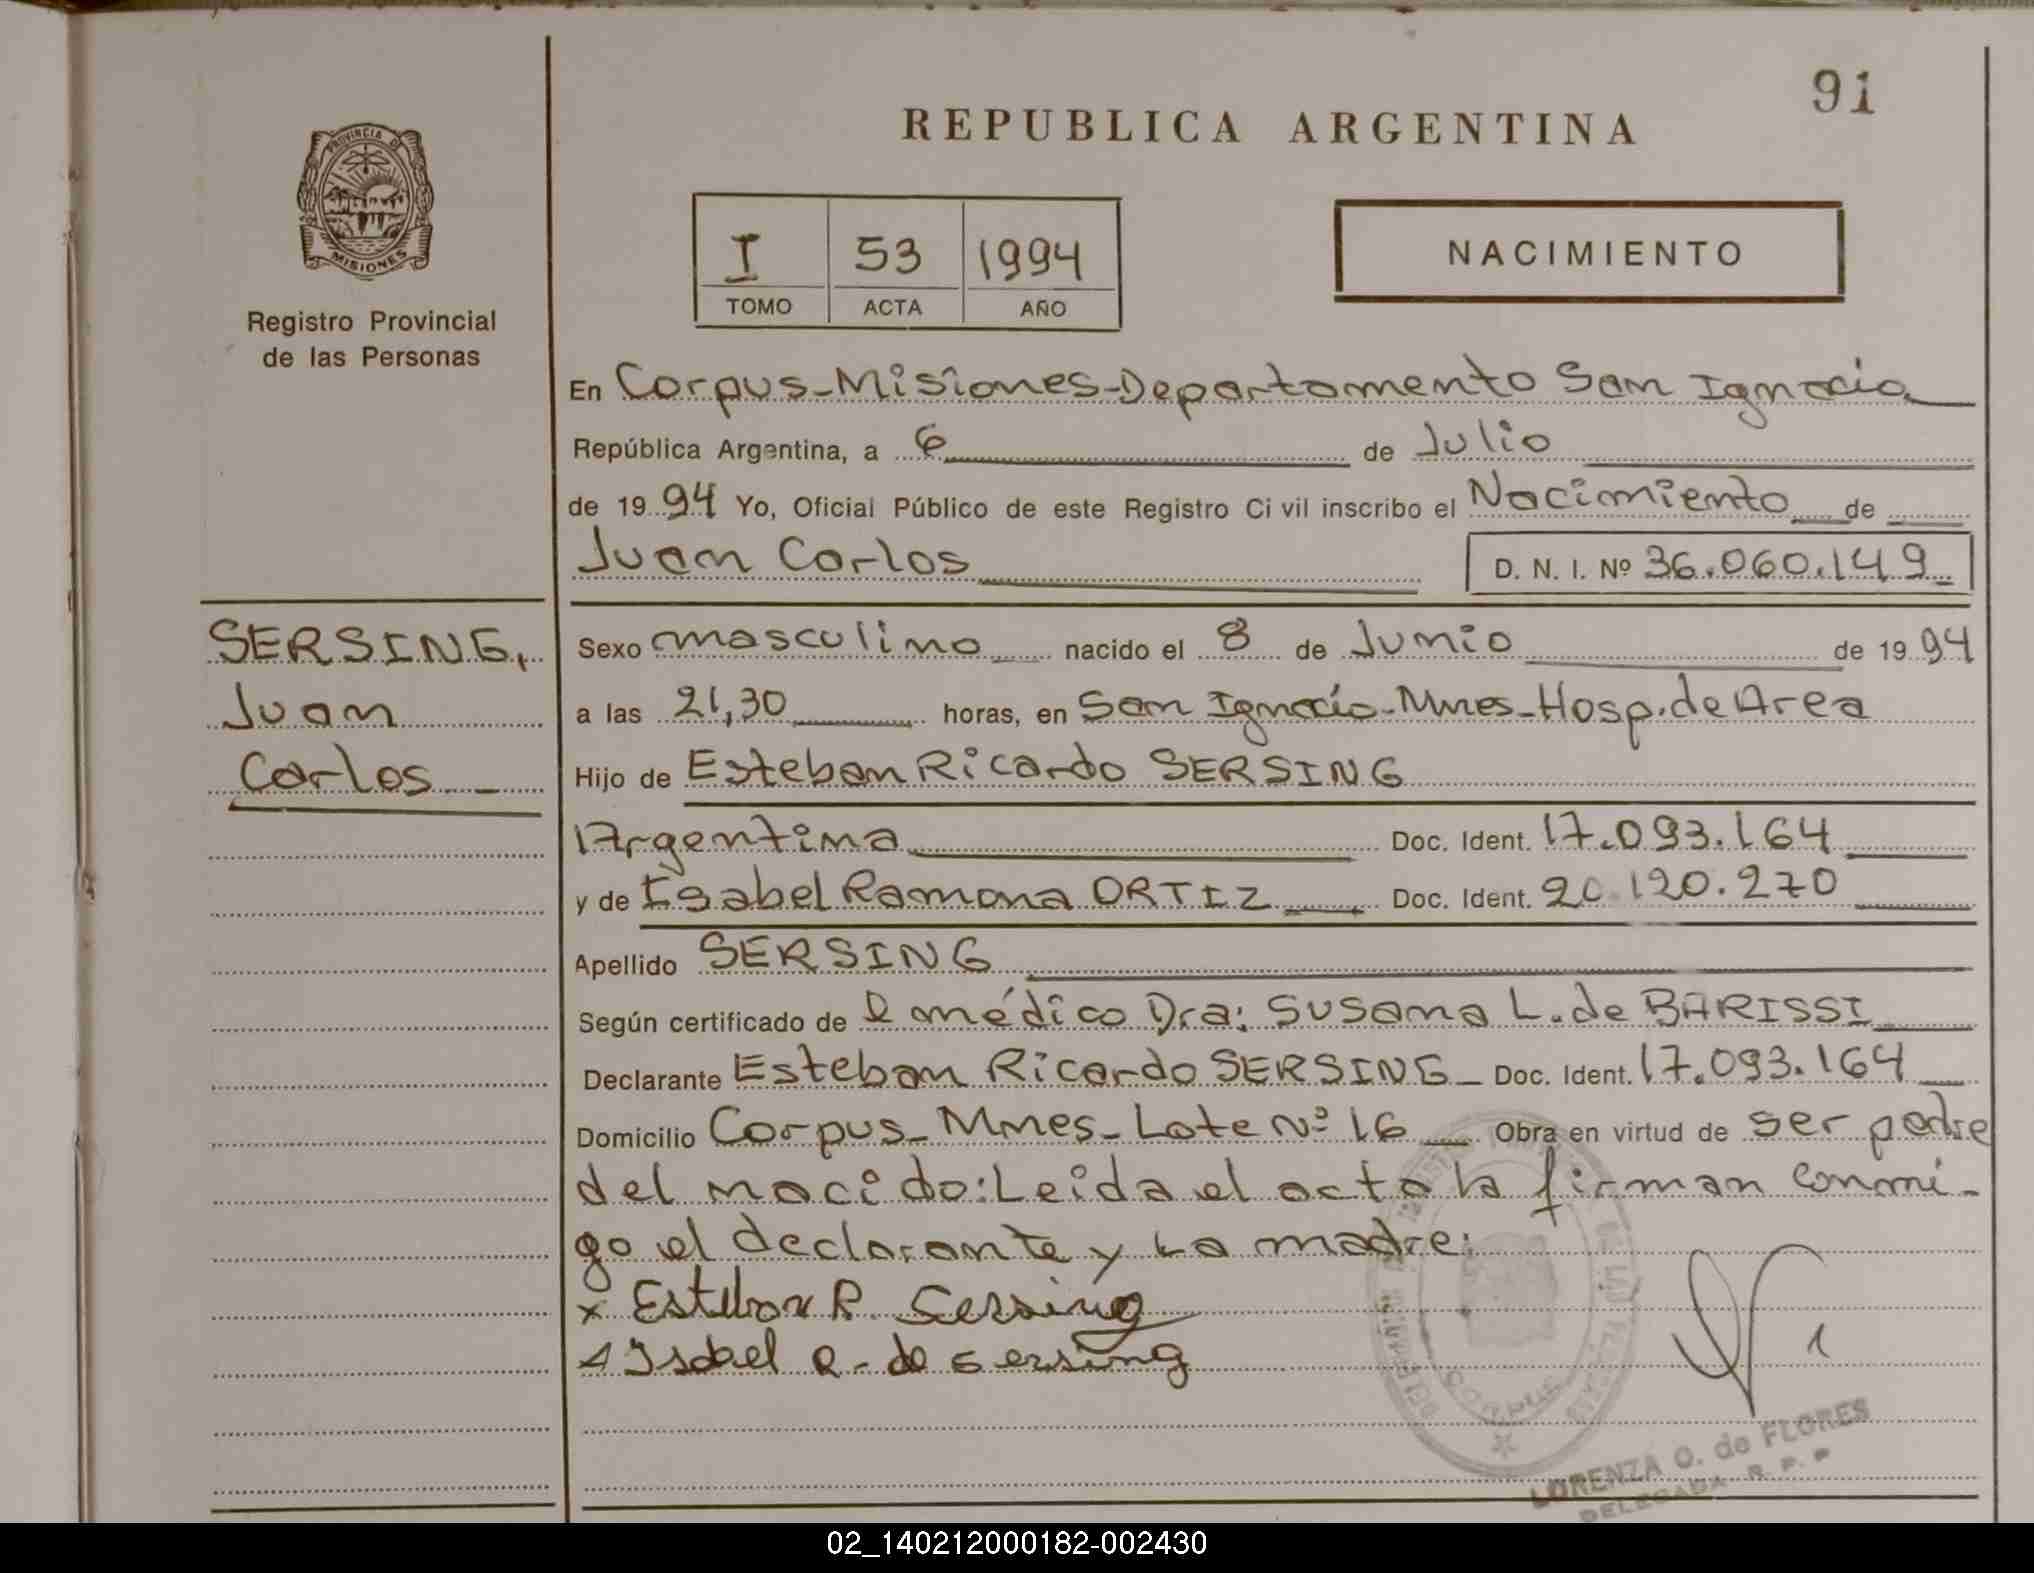 91
REPUBLICA ARGENTINA
PROVINCIA DE
MISIONES
Registro Provincial
de las Personas
I 53 1994
TOMO ACTA AÑO
NACIMIENTO
En Corpus-Misiones-Departamento San Ignacio
República Argentina, a 6 de Julio
de 1994 Yo, Oficial Público de este Registro Ci vil inscribo el Nacimiento de
Juan Carlos D. N. I. Nº 36.060.149
SERSING,
Juan
Carlos
Sexo masculino nacido el 8 de Junio de 1994
a las 21,30 horas, en San Ignacio-Mnes-Hosp.de Area
Hijo de Esteban Ricardo SERSING
Argentina Doc. Ident. 17.093.164
y de Isabel Ramona ORTIZ Doc. Ident. 20.120.270
Apellido SERSING
Según certificado de médico Dra: Susana L. de BARISSI
Declarante Esteban Ricardo SERSING Doc. Ident. 17.093.164
Domicilio Corpus-Mnes-Lote Nº 16 Obra en virtud de ser padre
del nacido: Leida el acta la firman conmi-
go el declarante y La madre:
x Esteban R. Sersing
Isabel R. de Sersing
CORPUS
LORENZA O. de FLORES
DELEGADA R. P. P
02_140212000182-002430